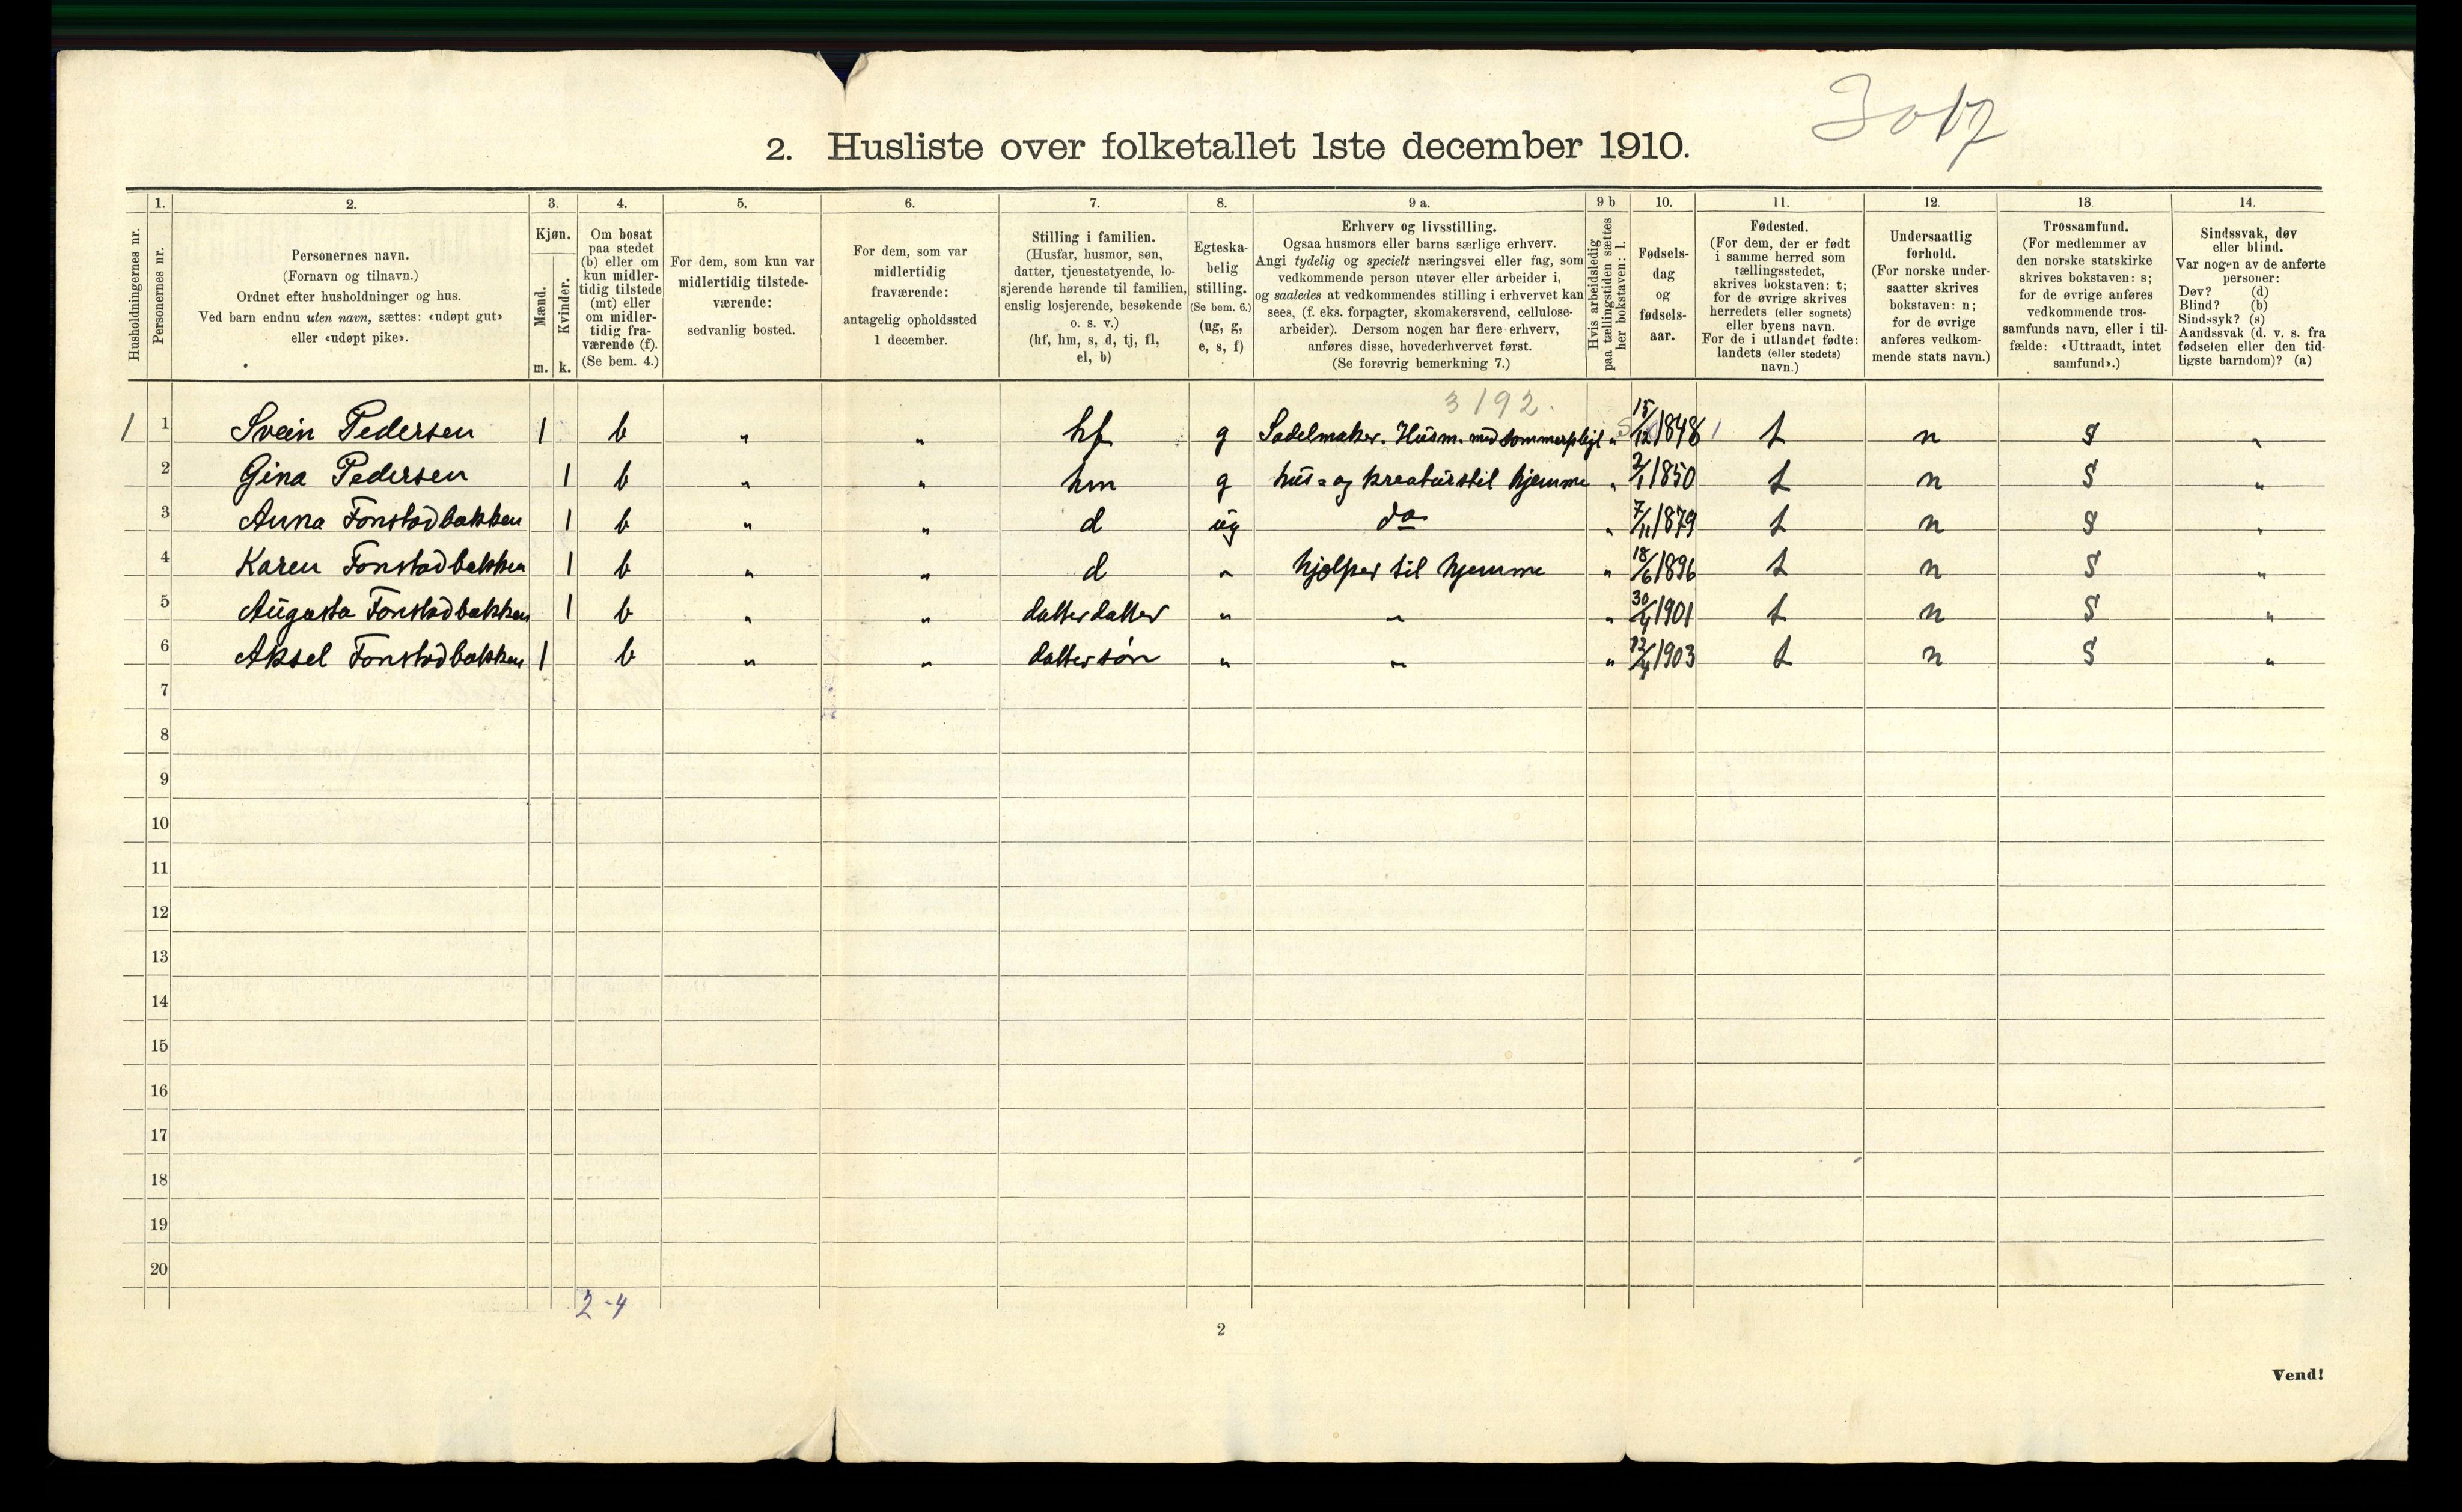 3017
2. Husliste over folketallet 1ste december 1910.
Husholdningernes nr.
1.
Personernes nr.
2.
Personernes navn.
(Fornavn og tilnavn.)
Ordnet efter husholdninger og hus.
Ved barn endnu uten navn, sættes: «udøpt gut»
eller «udøpt pike».
3.
Kjøn.
Mænd.
Kvinder.
m. k.
4.
Om bosat
paa stedet
(b) eller om
kun midler-
tidig tilstede
(mt) eller
om midler-
tidig fra-
værende (f).
(Se bem. 4.)
5.
For dem, som kun var
midlertidig tilstede-
værende:
sedvanlig bosted.
6.
For dem, som var
midlertidig
fraværende:
antagelig opholdssted
1 december.
7.
Stilling i familien.
(Husfar, husmor, søn,
datter, tjenestetyende, lo-
sjerende hørende til familien,
enslig losjerende, besøkende
o. s. v.)
(hf, hm, s, d, tj, fl,
el, b)
8.
Egteska-
belig
stilling.
(Se bem. 6.)
(ug, g,
e, s, f)
9 a.
Erhverv og livsstilling.
Ogsaa husmors eller barns særlige erhverv.
Angi tydelig og specielt næringsvei eller fag, som
vedkommende person utøver eller arbeider i,
og saaledes at vedkommendes stilling i erhvervet kan
sees, (f. eks. forpagter, skomakersvend, cellulose-
arbeider). Dersom nogen har flere erhverv,
anføres disse, hovederhvervet først.
(Se forøvrig bemerkning 7.)
9 b
Hvis arbeidsledig
paa tællingstiden sættes
her bokstaven: l.
10.
Fødsels-
dag
og
fødsels-
aar.
11.
Fødested.
(For dem, der er født
i samme herred som
tællingsstedet,
skrives bokstaven: t;
for de øvrige skrives
herredets (eller sognets)
eller byens navn.
For de i utlandet fødte:
landets (eller stedets)
navn.)
12.
Undersaatlig
forhold.
(For norske under-
saatter skrives
bokstaven: n;
for de øvrige
anføres vedkom-
mende stats navn.)
13.
Trossamfund.
(For medlemmer av
den norske statskirke
skrives bokstaven: s;
for de øvrige anføres
vedkommende tros-
samfunds navn, eller i til-
fælde: «Uttraadt, intet
samfund».)
14.
Sindssvak, døv
eller blind.
Var nogen av de anførte
personer:
Døv? (d)
Blind? (b)
Sindssyk? (s)
Aandssvak (d. v. s. fra
fødselen eller den tid-
ligste barndom)? (a)
3192.
1 1 Svein Pedersen 1 b " " hf g Sadelmaker. Husm. med sommerpligt " 15/12 1848 t n S "
2 Gina Pedersen 1 b " " hm g hus- og kreaturstel hjemme " 2/1 1850 t n S "
3 Anna Fonstadbakken 1 b " " d ug do " 7/11 1879 t n S "
4 Karen Fonstadbakken 1 b " " d " hjelper til hjemme " 18/6 1896 t n S "
5 Augusta Fonstadbakken 1 b " " datterdatter " " " 30/4 1901 t n S "
6 Aksel Fonstadbakken 1 b " " dattersøn " " " 12/4 1903 t n S "
7
8
9
10
11
12
13
14
15
16
17
18
19
20
2-4
2
Vend!